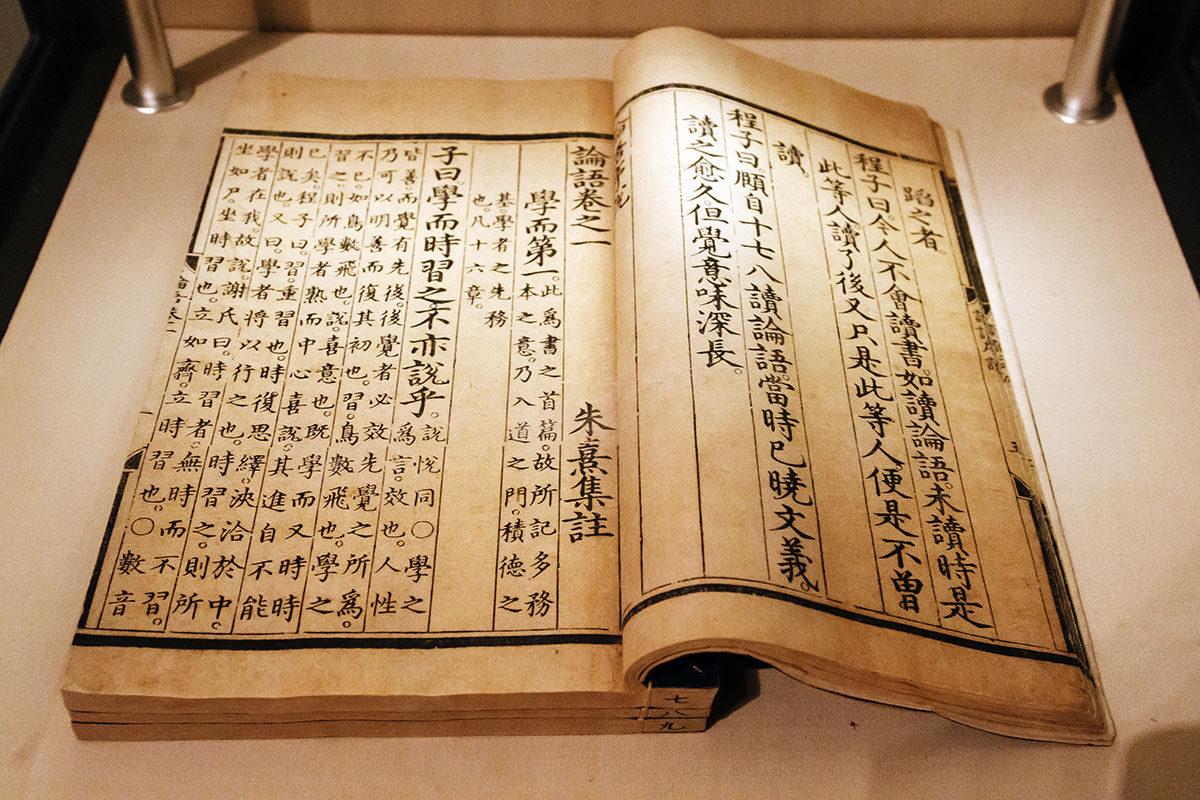 蹈之者。
程子曰。今人不會讀書。如讀論語。未讀時是
此等人。讀了後又只是此等人。便是不曾
讀。
程子曰。頤自十七八讀論語。當時已曉文義。
讀之愈久。但覺意味深長。
論語卷之一
朱熹集註
學而第一。此爲書之首篇。故所記多務
本之意。乃入道之門。積德之
基。學者之先務
也。凡十六章。
子曰。學而時習之。不亦說乎。說悅同○學之
爲言。效也。人性
皆善。而覺有先後。後覺者必效先覺之所爲。
乃可以明善而復其初也。習。鳥數飛也。學之
不已。如鳥數飛也。說。喜意也。既學而又時時
習之。則所學者熟。而中心喜說。其進自不能
已矣。程子曰。習。重習也。時復思繹。浹洽於中。
則說也。又曰。學者將以行之也。時習之。則所
學者在我。故說。謝氏曰。時習者。無時而不習。
坐如尸。坐時習也。立如齊。立時習也。○數音
七
八
九